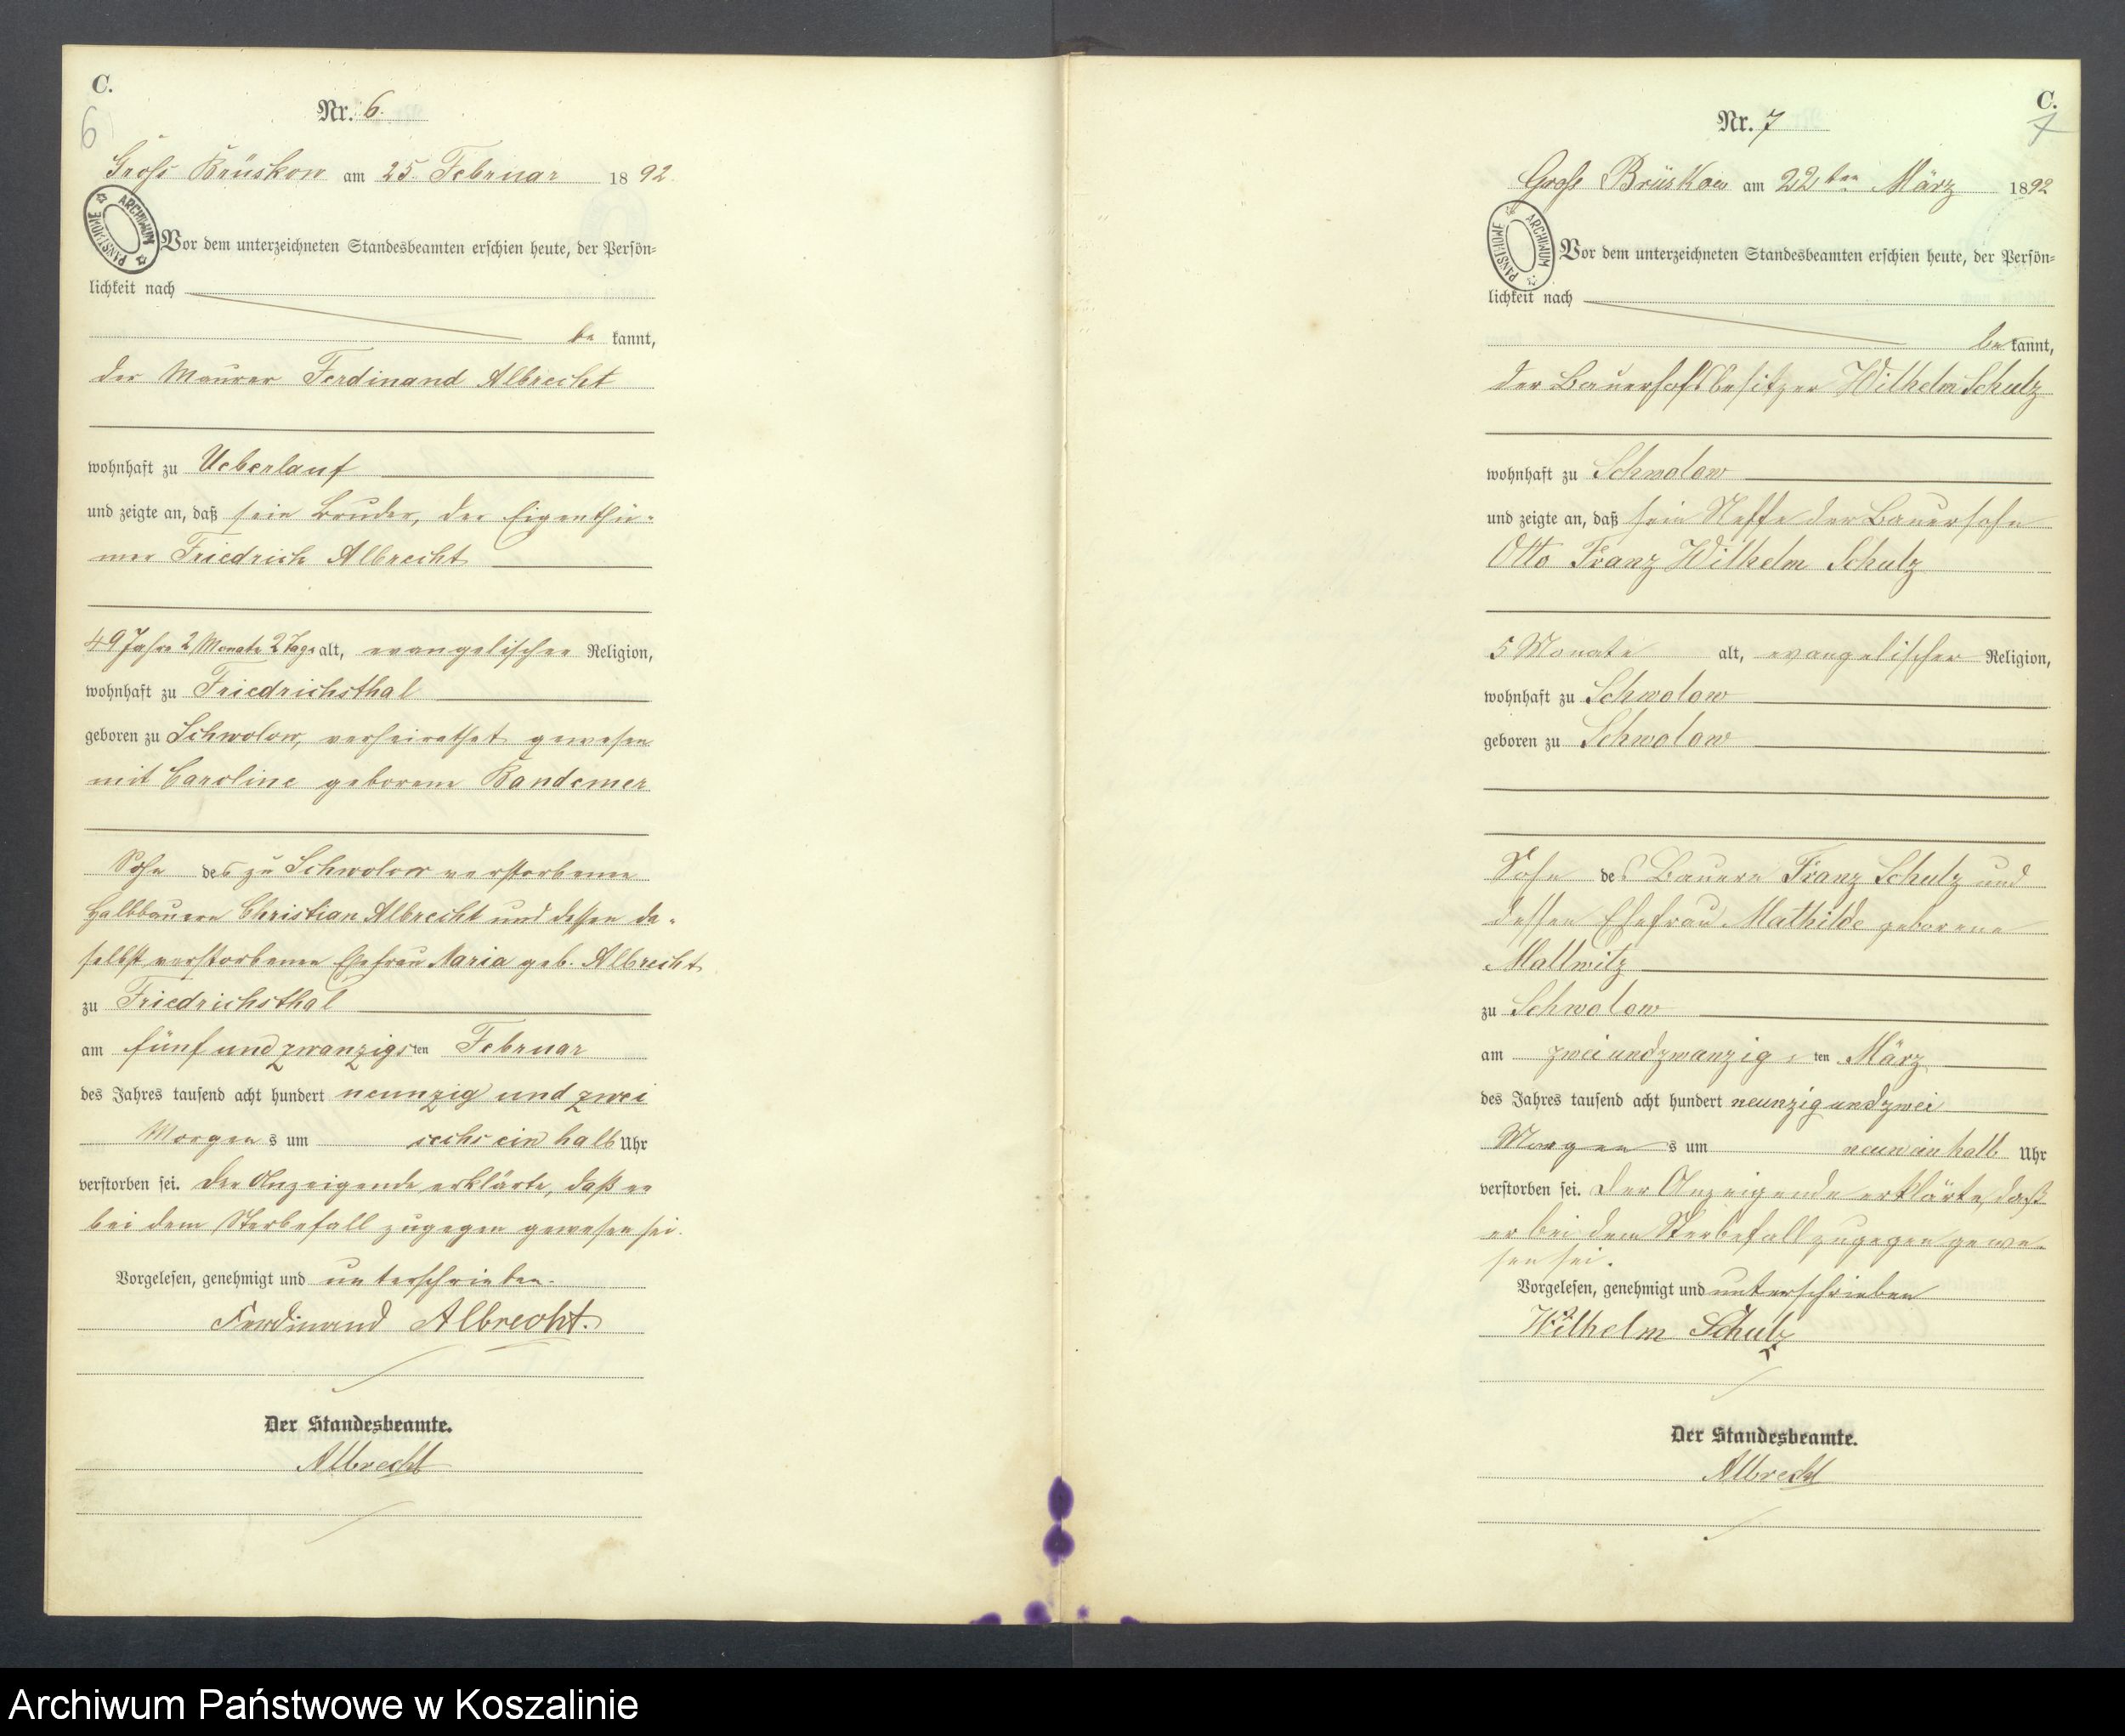 C.
6
Nr. 6.
Groß Brüskow am 25. Februar 1892.
ARCHIWUM PAŃSTWOWE
Vor dem unterzeichneten Standesbeamten erschien heute, der Persön-
lichkeit nach
be kannt,
der Maurer Ferdinand Albrecht
wohnhaft zu Ueberlauf
und zeigte an, daß sein Bruder, der Eigenthü-
mer Friedrich Albrecht
49 Jahre 2 Monate 2 Tage alt, evangelischer Religion,
wohnhaft zu Friedrichsthal
geboren zu Schwolow, verheirathet gewesen
mit Caroline geborene Bandemer
Sohn des zu Schwolow verstorbenen
Halbbauern Christian Albrecht und dessen da-
selbst verstorbenen Ehefrau Maria geb. Albrecht
zu Friedrichsthal
am fünf und zwanzigsten Februar
des Jahres tausend acht hundert neunzig und zwei
Morgens um sechs ein halb Uhr
verstorben sei. Der Anzeigende erklärte, daß er
bei dem Sterbefall zugegen gewesen sei.
Vorgelesen, genehmigt und unterschrieben.
Ferdinand Albrecht.
Der Standesbeamte.
Albrecht
C.
7
Nr. 7
Groß Brüskow am 22ten März 1892
ARCHIWUM PAŃSTWOWE
Vor dem unterzeichneten Standesbeamten erschien heute, der Persön-
lichkeit nach
be kannt,
der Bauerhofsbesitzer Wilhelm Schulz
wohnhaft zu Schwolow
und zeigte an, daß sein Neffe der Bauersohn
Otto Franz Wilhelm Schulz
5 Monate alt, evangelischer Religion,
wohnhaft zu Schwolow
geboren zu Schwolow
Sohn des Bauern Franz Schulz und
dessen Ehefrau Mathilde geborene
Mallwitz
zu Schwolow
am zwei und zwanzigsten März
des Jahres tausend acht hundert neunzig und zwei
Morgens um neun ein halb Uhr
verstorben sei. Der Anzeigende erklärte, daß
er bei dem Sterbefall zugegen gewe-
sen sei.
Vorgelesen, genehmigt und unterschrieben
Wilhelm Schulz
Der Standesbeamte.
Albrecht
Archiwum Państwowe w Koszalinie